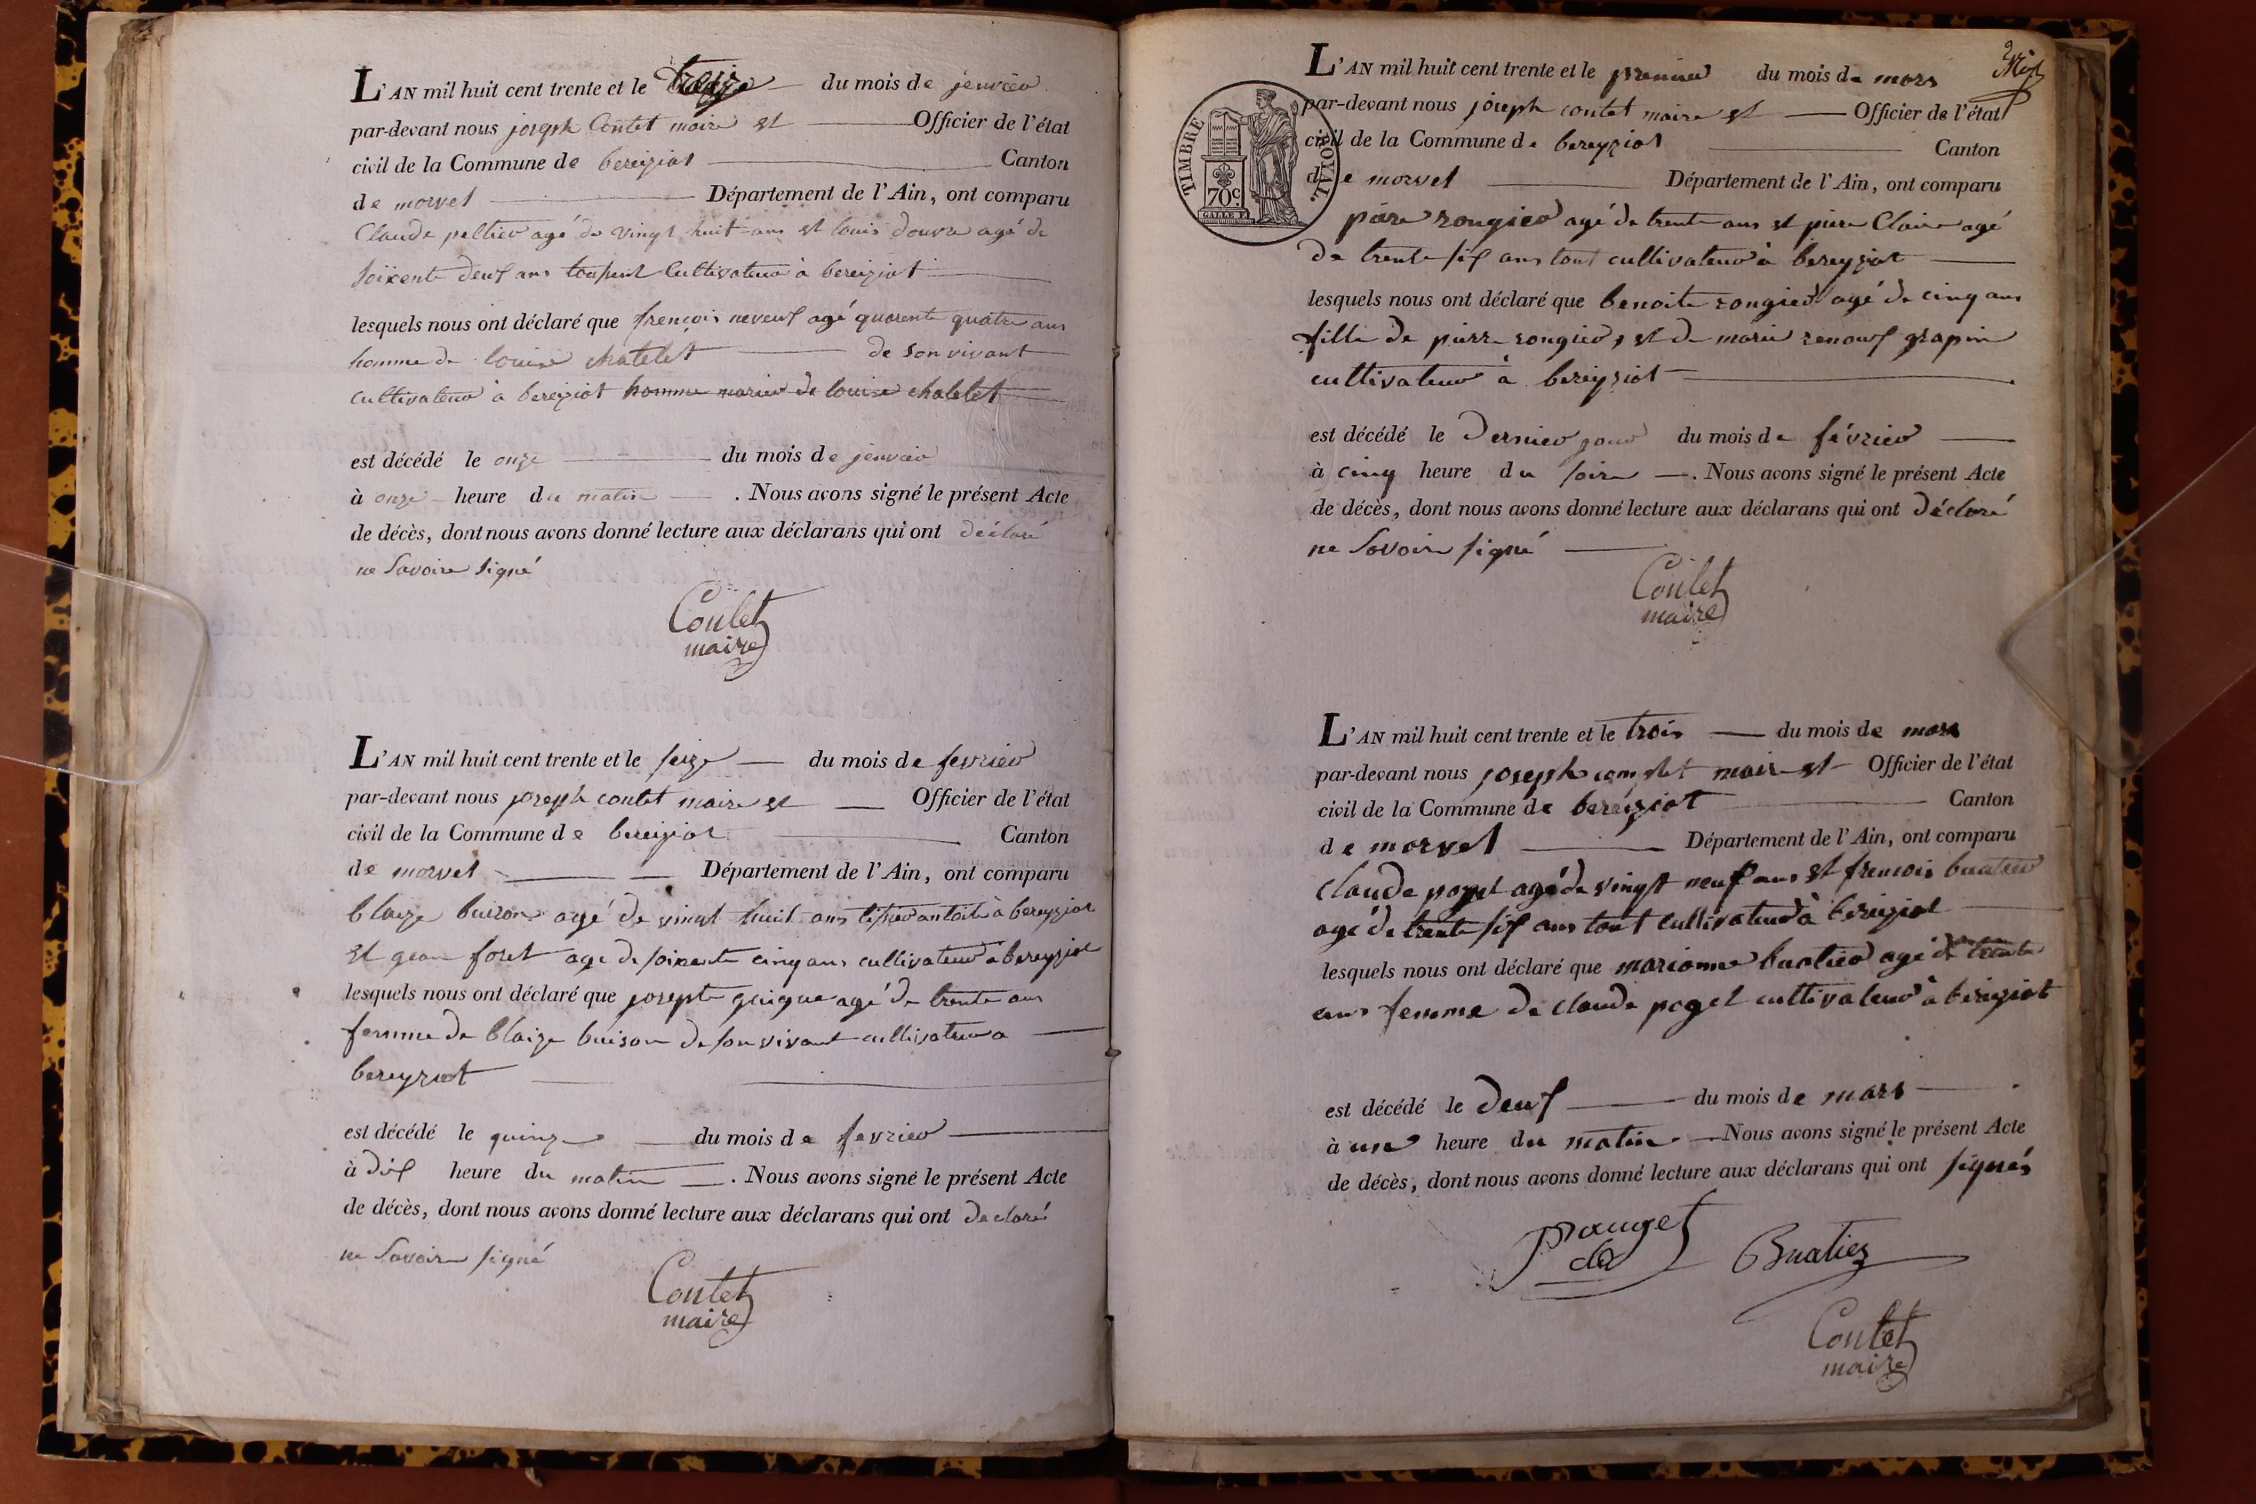 L'AN mil huit cent trente et le treize du mois de jenvier
par-devant nous joseph Coutet maire et Officier de l'état
civil de la Commune de bereiziat Canton
de morvel Département de l'Ain, ont comparu
Claude peltier agé de vingt huit ans et louis douvre agé de
soixente deux ans Cultivateur à bereiziat
lesquels nous ont déclaré que françois neveux agé quarente quatre ans
homme de louise chatelet de son vivant
cultivateur à bereiziat homme marier de louise chatelet
est décédé le onze du mois de jenvier
à onze heure du matin . Nous avons signé le présent Acte
de décès, dont nous avons donné lecture aux déclarans qui ont déclaré
ne Savoire Signé
Coutet
maire
L'AN mil huit cent trente et le seize du mois de fevrier
par-devant nous joseph coutet maire et Officier de l'état
civil de la Commune de bereiziat Canton
de morvel Département de l'Ain, ont comparu
blaize buison agé de vingt huit ans à bereyziat
et jean foret agé de soixente cinq ans cultivateur a bereyziat
lesquels nous ont déclaré que josepte agé de trente ans
femme de blaize buison de son vivant cultivateur a
bereyziat
est décédé le quinze du mois de fevrier
à dix heure du matin . Nous avons signé le présent Acte
de décès, dont nous avons donné lecture aux déclarans qui ont declaré
ne Savoire signé
Coutet
maire
TIMBRE ROYAL.
70c.
L'AN mil huit cent trente et le premier du mois de mars
par-devant nous joseph coutet maire et Officier de l'état
civil de la Commune de bereyziat Canton
de morvel Département de l'Ain, ont comparu
piere rongier agé de trente ans et piere Claire agé
de trente six ans tout cultivateur à bereyziat
lesquels nous ont déclaré que benoite rongier agé de cinq ans
fille de pierre rongier, et de marie renoux grapin
cultivateur à bereyziat
est décédé le dernier jour du mois de février
à cinq heure du soire . Nous avons signé le présent Acte
de décès, dont nous avons donné lecture aux déclarans qui ont déclaré
ne Savoire signé
Coutet
maire
L'AN mil huit cent trente et le trois du mois de mars
par-devant nous joseph maire et Officier de l'état
civil de la Commune de bereiziat Canton
de morvel Département de l'Ain, ont comparu
claude poget agé de vingt neuf ans et frencois buatier
agé de trente six ans tout cultivateur à bereiziat
lesquels nous ont déclaré que marianne buatier agé de trente
ans femme de claude poget cultivateur à bereiziat
est décédé le deux du mois de mars
à une heure du matin . Nous avons signé le présent Acte
de décès, dont nous avons donné lecture aux déclarans qui ont signés
pauget
cla
Buatiez
Coutet
maire